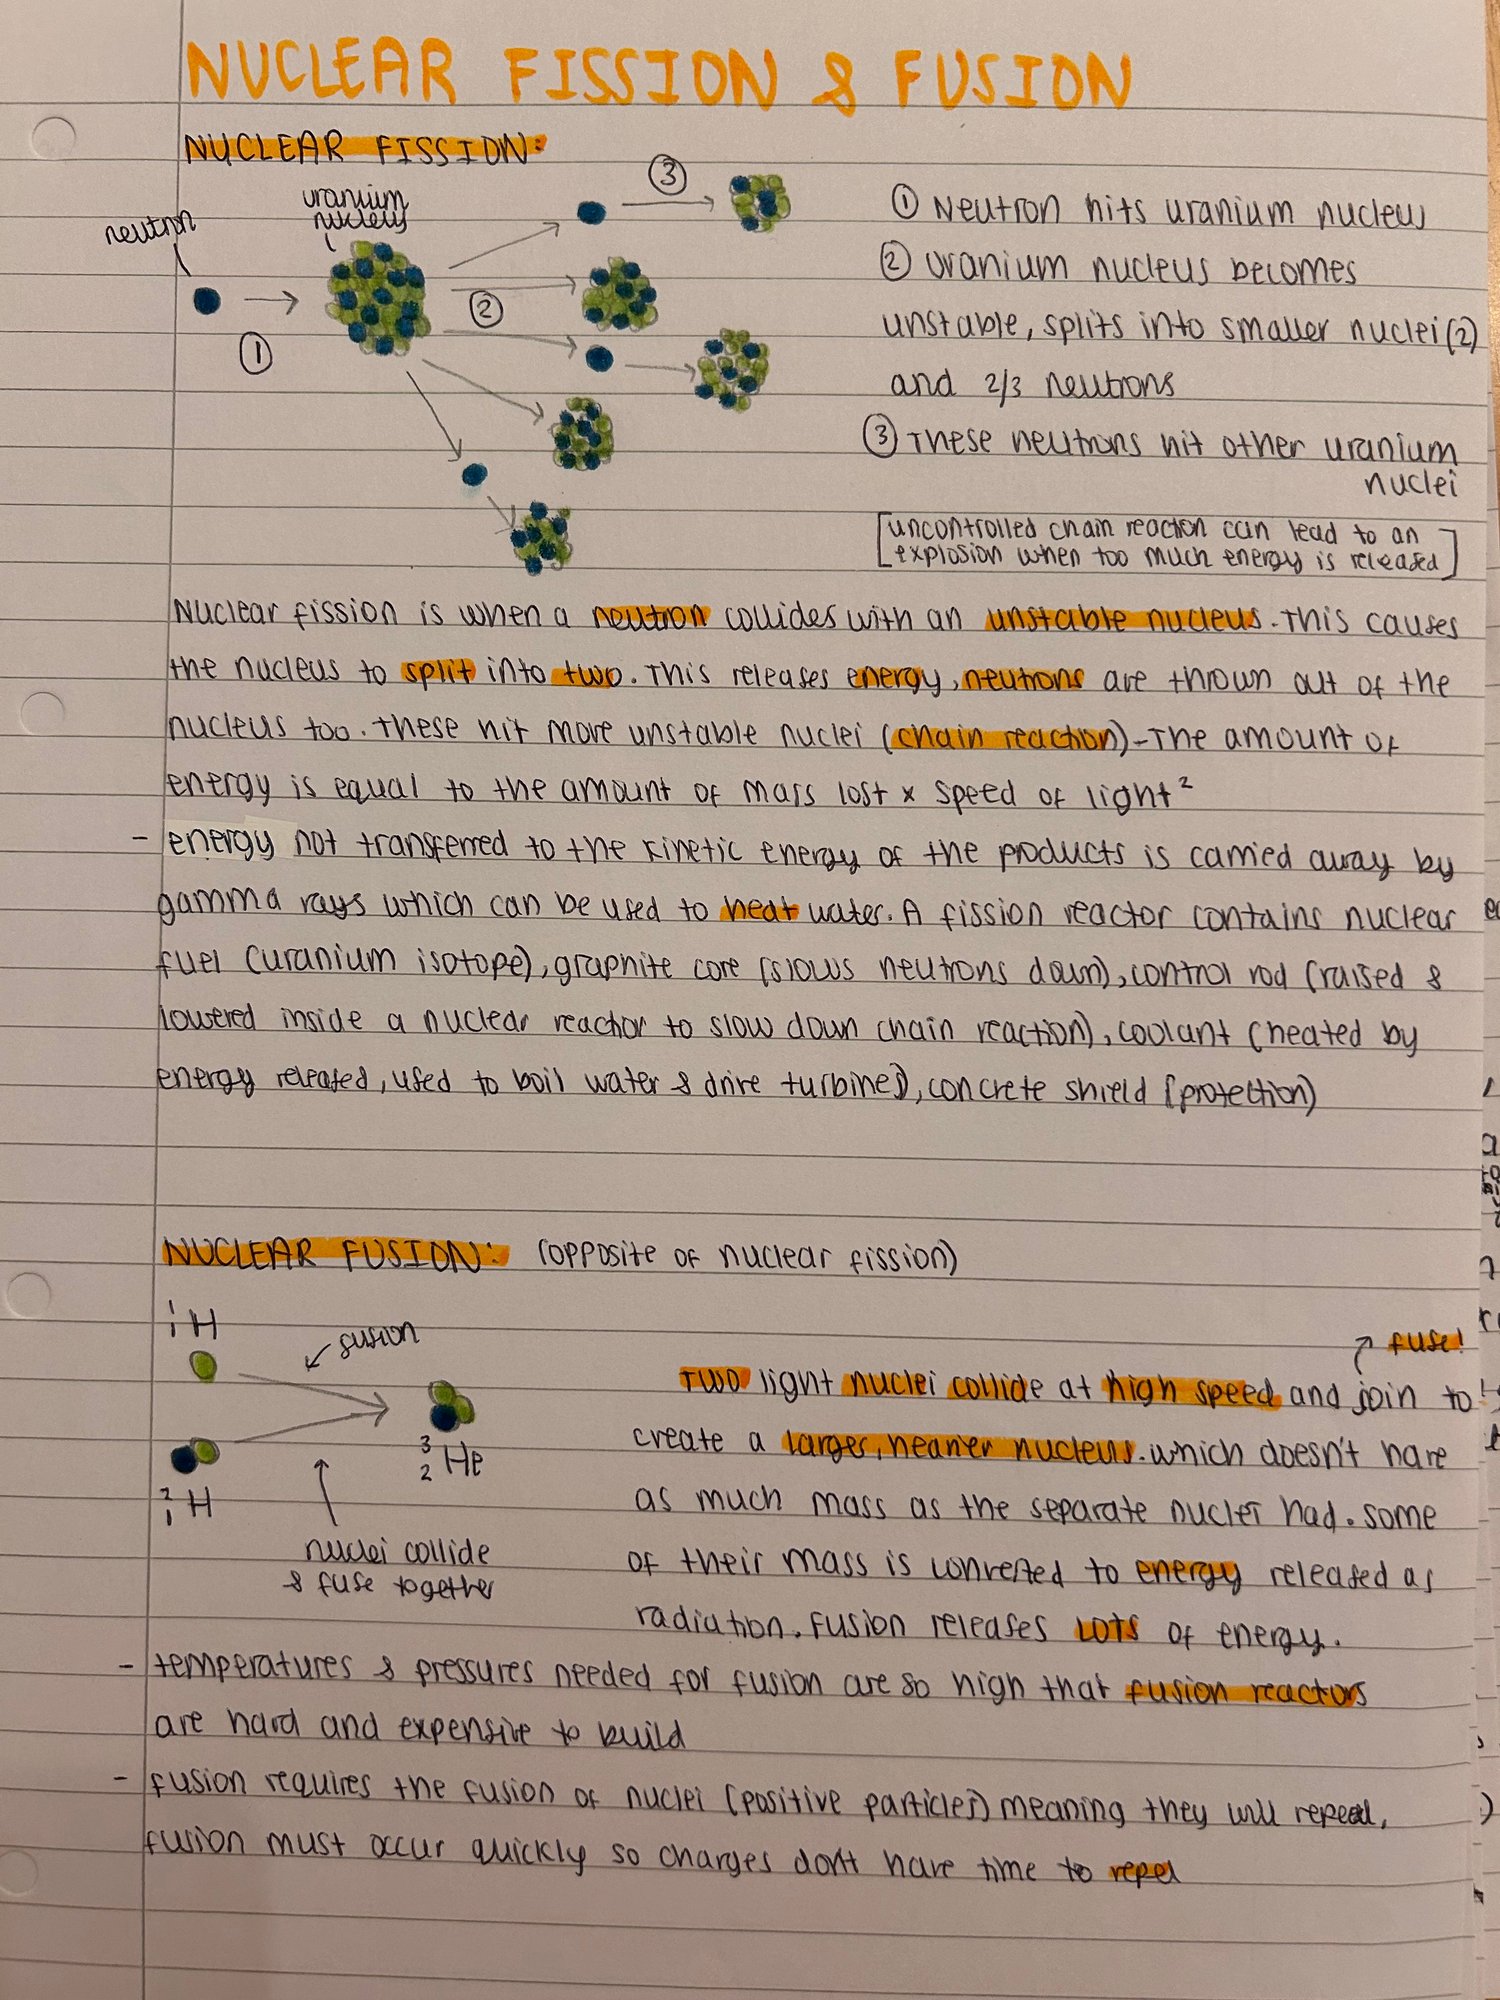 NUCLEAR FISSION & FUSION
NUCLEAR FISSION:
neutron
uranium
nucleus
①
②
③
① Neutron hits uranium nucleus
② Uranium nucleus becomes
unstable, splits into smaller nuclei (2)
and 2/3 neutrons
③ These neutrons hit other uranium
nuclei
[uncontrolled chain reaction can lead to an
explosion when too much energy is released]
Nuclear fission is when a neutron collides with an unstable nucleus. This causes
the nucleus to split into two. This releases energy, neutrons are thrown out of the
nucleus too. These hit more unstable nuclei (chain reaction) - The amount of
energy is equal to the amount of mass lost x speed of light²
- energy not transferred to the kinetic energy of the products is carried away by
gamma rays which can be used to heat water. A fission reactor contains nuclear
fuel (uranium isotope), graphite core (slows neutrons down), control rod (raised &
lowered inside a nuclear reactor to slow down chain reaction), coolant (heated by
energy released, used to boil water & drive turbines), concrete shield (protection)
NUCLEAR FUSION: (opposite of nuclear fission)
¹₁H
fusion
³₂He
²₁H
nuclei collide
& fuse together
fuse!
Two light nuclei collide at high speed and join to
create a larger, heavier nucleus. which doesn't have
as much mass as the separate nuclei had. some
of their mass is converted to energy released as
radiation. Fusion releases LOTS of energy.
- temperatures & pressures needed for fusion are so high that fusion reactors
are hard and expensive to build
- fusion requires the fusion of nuclei (positive particles) meaning they will repeal,
fusion must occur quickly so charges don't have time to repel